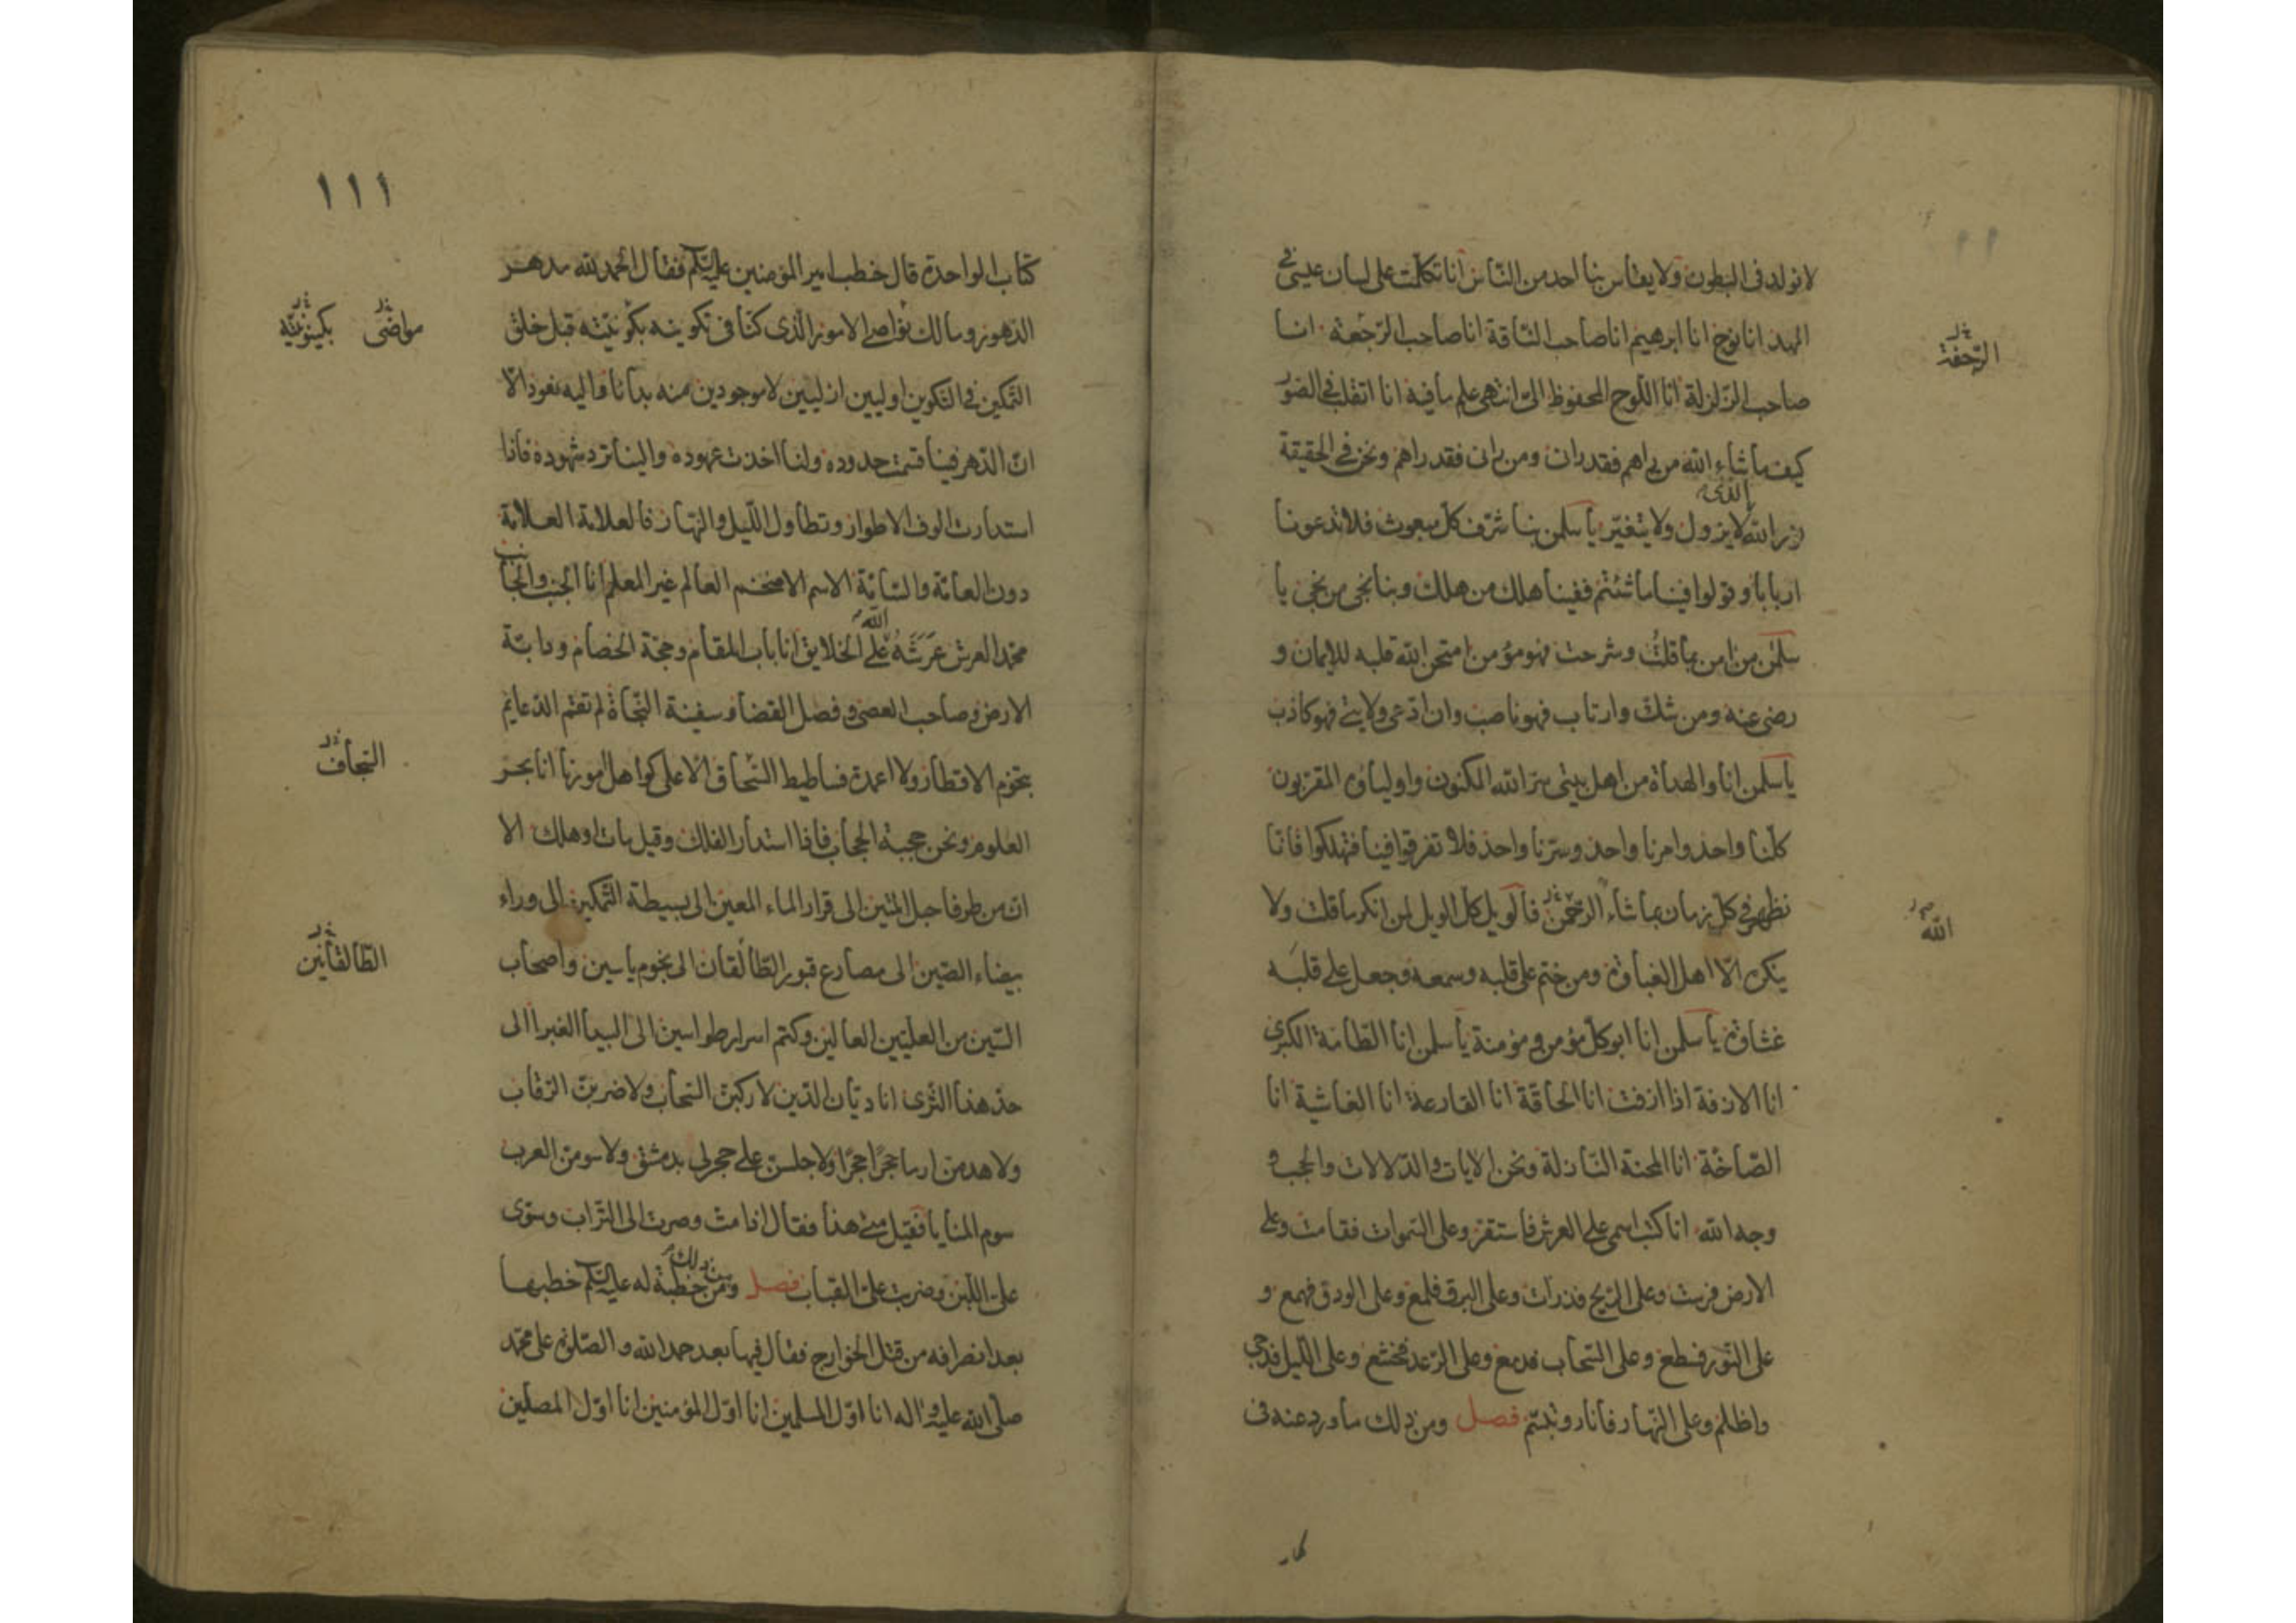 لانولد في البطون ولا يقاس بنا احد من الناس انا تكلمت على لسان عيسى في
المهد انا نوح انا ابرهيم انا صاحب الناقة انا صاحب الرجعة انا
الرجفة
صاحب الزلزلة انا اللوح المحفوظ الى انتهى علم ما فيه انا اتقلب في الصور
كيف ما شاء الله من راهم فقد راني ومن راني فقد راهم ونحن في الحقيقة
نور الله الذى لا يزول ولا يتغير يا سلمن بنا شرف كل مبعوث فلا تدعونا
اربابا وقولوا فينا ما شئتم ففينا هلك من هلك وبنا نجى من نجى يا
سلمن من امن بما قلت وشرحت فهو مؤمن امتحن الله قلبه للايمان و
رضى عنه ومن شك وارتاب فهو ناصب وان ادعى ولايتى فهو كاذب
يا سلمن انا والهداة من اهل بيتى سر الله المكنون واولياؤه المقربون
كلنا واحد وامرنا واحد وسرنا واحد فلا تفرقوا فينا فتهلكوا فانا
نظهر في كل زمان بما شاء الرحمن فالويل كل الويل لمن انكر ما قلت ولا
الله
ينكره الا اهل الغباوة ومن ختم على قلبه وسمعه وجعل على قلبه
غشاوة يا سلمن انا ابو كل مؤمن ومؤمنة يا سلمن انا الطامة الكبرى
انا الازفة اذا ازفت انا الحاقة انا القارعة انا الغاشية انا
الصاخة انا المحنة النازلة ونحن الايات والدلالات والحجب و
وجه الله انا كتب اسمى على العرش فاستقر وعلى السموات فقامت وعلى
الارض فرست وعلى الريح فذرات وعلى البرق فلمع وعلى الودق فهمع و
على النور فسطع وعلى السحاب فدمع وعلى الرعد فخشع وعلى الليل فدجى
واظلم وعلى النهار فانار وتبسم فصل ومن ذلك ما ورد عنه في
١١١
كتاب الواحدة قال خطب امير المؤمنين عليه السلم فقال الحمد لله مدهر
الدهور ومالك نواصى الامور الذى كنا في تكوينه بكونيته قبل خلق
مواضى بكينونيته
التمكين في التكوين اوليين ازليين لا موجودين منه بدانا واليه نعود الا
ان الدهر فينا قسمت حدوده ولنا اخذت عهوده والينا ترد شهوده فاذا
استدارت الوف الاطوار وتطاول الليل والنهار فالعلامة العلامة
دون العامة والسامة الاسم الاضخم العالم غير المعلم انا الجنب والجانب
محمد العرش عرش الله على الخلايق انا باب المقام وحجة الخصام ودابة
الارض وصاحب العصى وفصل القضا وسفينة النجاة لم تقم الدعايم
بتخوم الاقطار ولا اعمدة فساطيط السجاف الا على كواهل امورنا انا بحر
السجاف
العلوم ونحن حجبة الحجاب فاذا استدار الفلك وقيل مات او هلك الا
ان من طرفا حبل المتين الى قرار الماء المعين الى بسيطة التمكين الى وراء
بيضاء الصين الى مصارع قبور الطالقان الى نجوم ياسين واصحاب
الطالقانين
السين من العليين العالين وكتم اسرار طواسين الى البيدا الغبرا الى
حد هذا الثرى انا ديان الدين لاركبن السحاب ولاضربن الرقاب
ولاهدمن ارما حجرا حجرا ولاجلسن على حجر لى بدمشق ولاسومن العرب
سوم المنايا فقيل متى هذا فقال اذا مت وصرت الى التراب وسوى
على اللبن وضربت على القباب فصل ومن ذلك خطبة له عليه السلم خطبها
بعد انصرافه من قتل الخوارج فقال فيها بعد حمد الله والصلوة على محمد
صلى الله عليه واله انا اول المسلمين انا اول المؤمنين انا اول المصلين